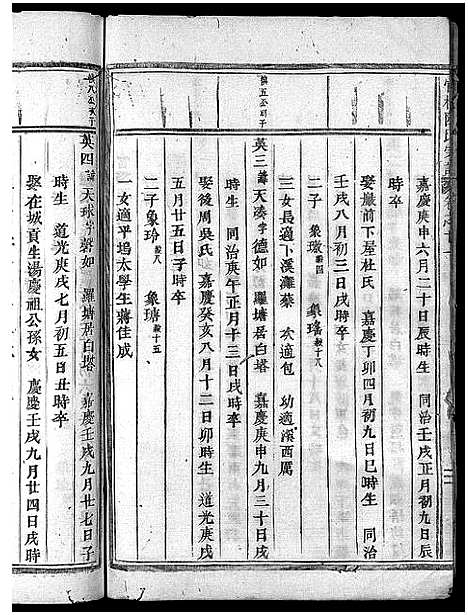 嘉慶庚申六月二十日辰時生　同治壬戌正月初九日辰
時卒
娶巖前下屋杜氏　嘉慶丁卯四月初九日巳時生　同治
壬戌八月初三日戌時卒
二子　象璈　毅四　象璿　毅十八
三女長適卜溪灘蔡　次適包　幼適溪西厲
慎五公 子
英三　諱天湊字德如　羅塘居白塔　嘉慶庚申九月三十日戌
時生　同治庚午正月十三日戌時卒
娶後周吳氏　嘉慶癸亥八月十二日卯時生　道光庚戌
五月廿五日子時卒
二子象玲　毅八　象璿　毅十五
一女適平塢太學生蔣佳成
慎八公 子
英四　諱天球字磬如　羅塘居白塔　嘉慶壬戌九月廿七日子
時生　道光庚戌七月初五日丑時卒
娶在城貢生湯慶祖公孫女　慶慶壬戌九月廿四日戌時